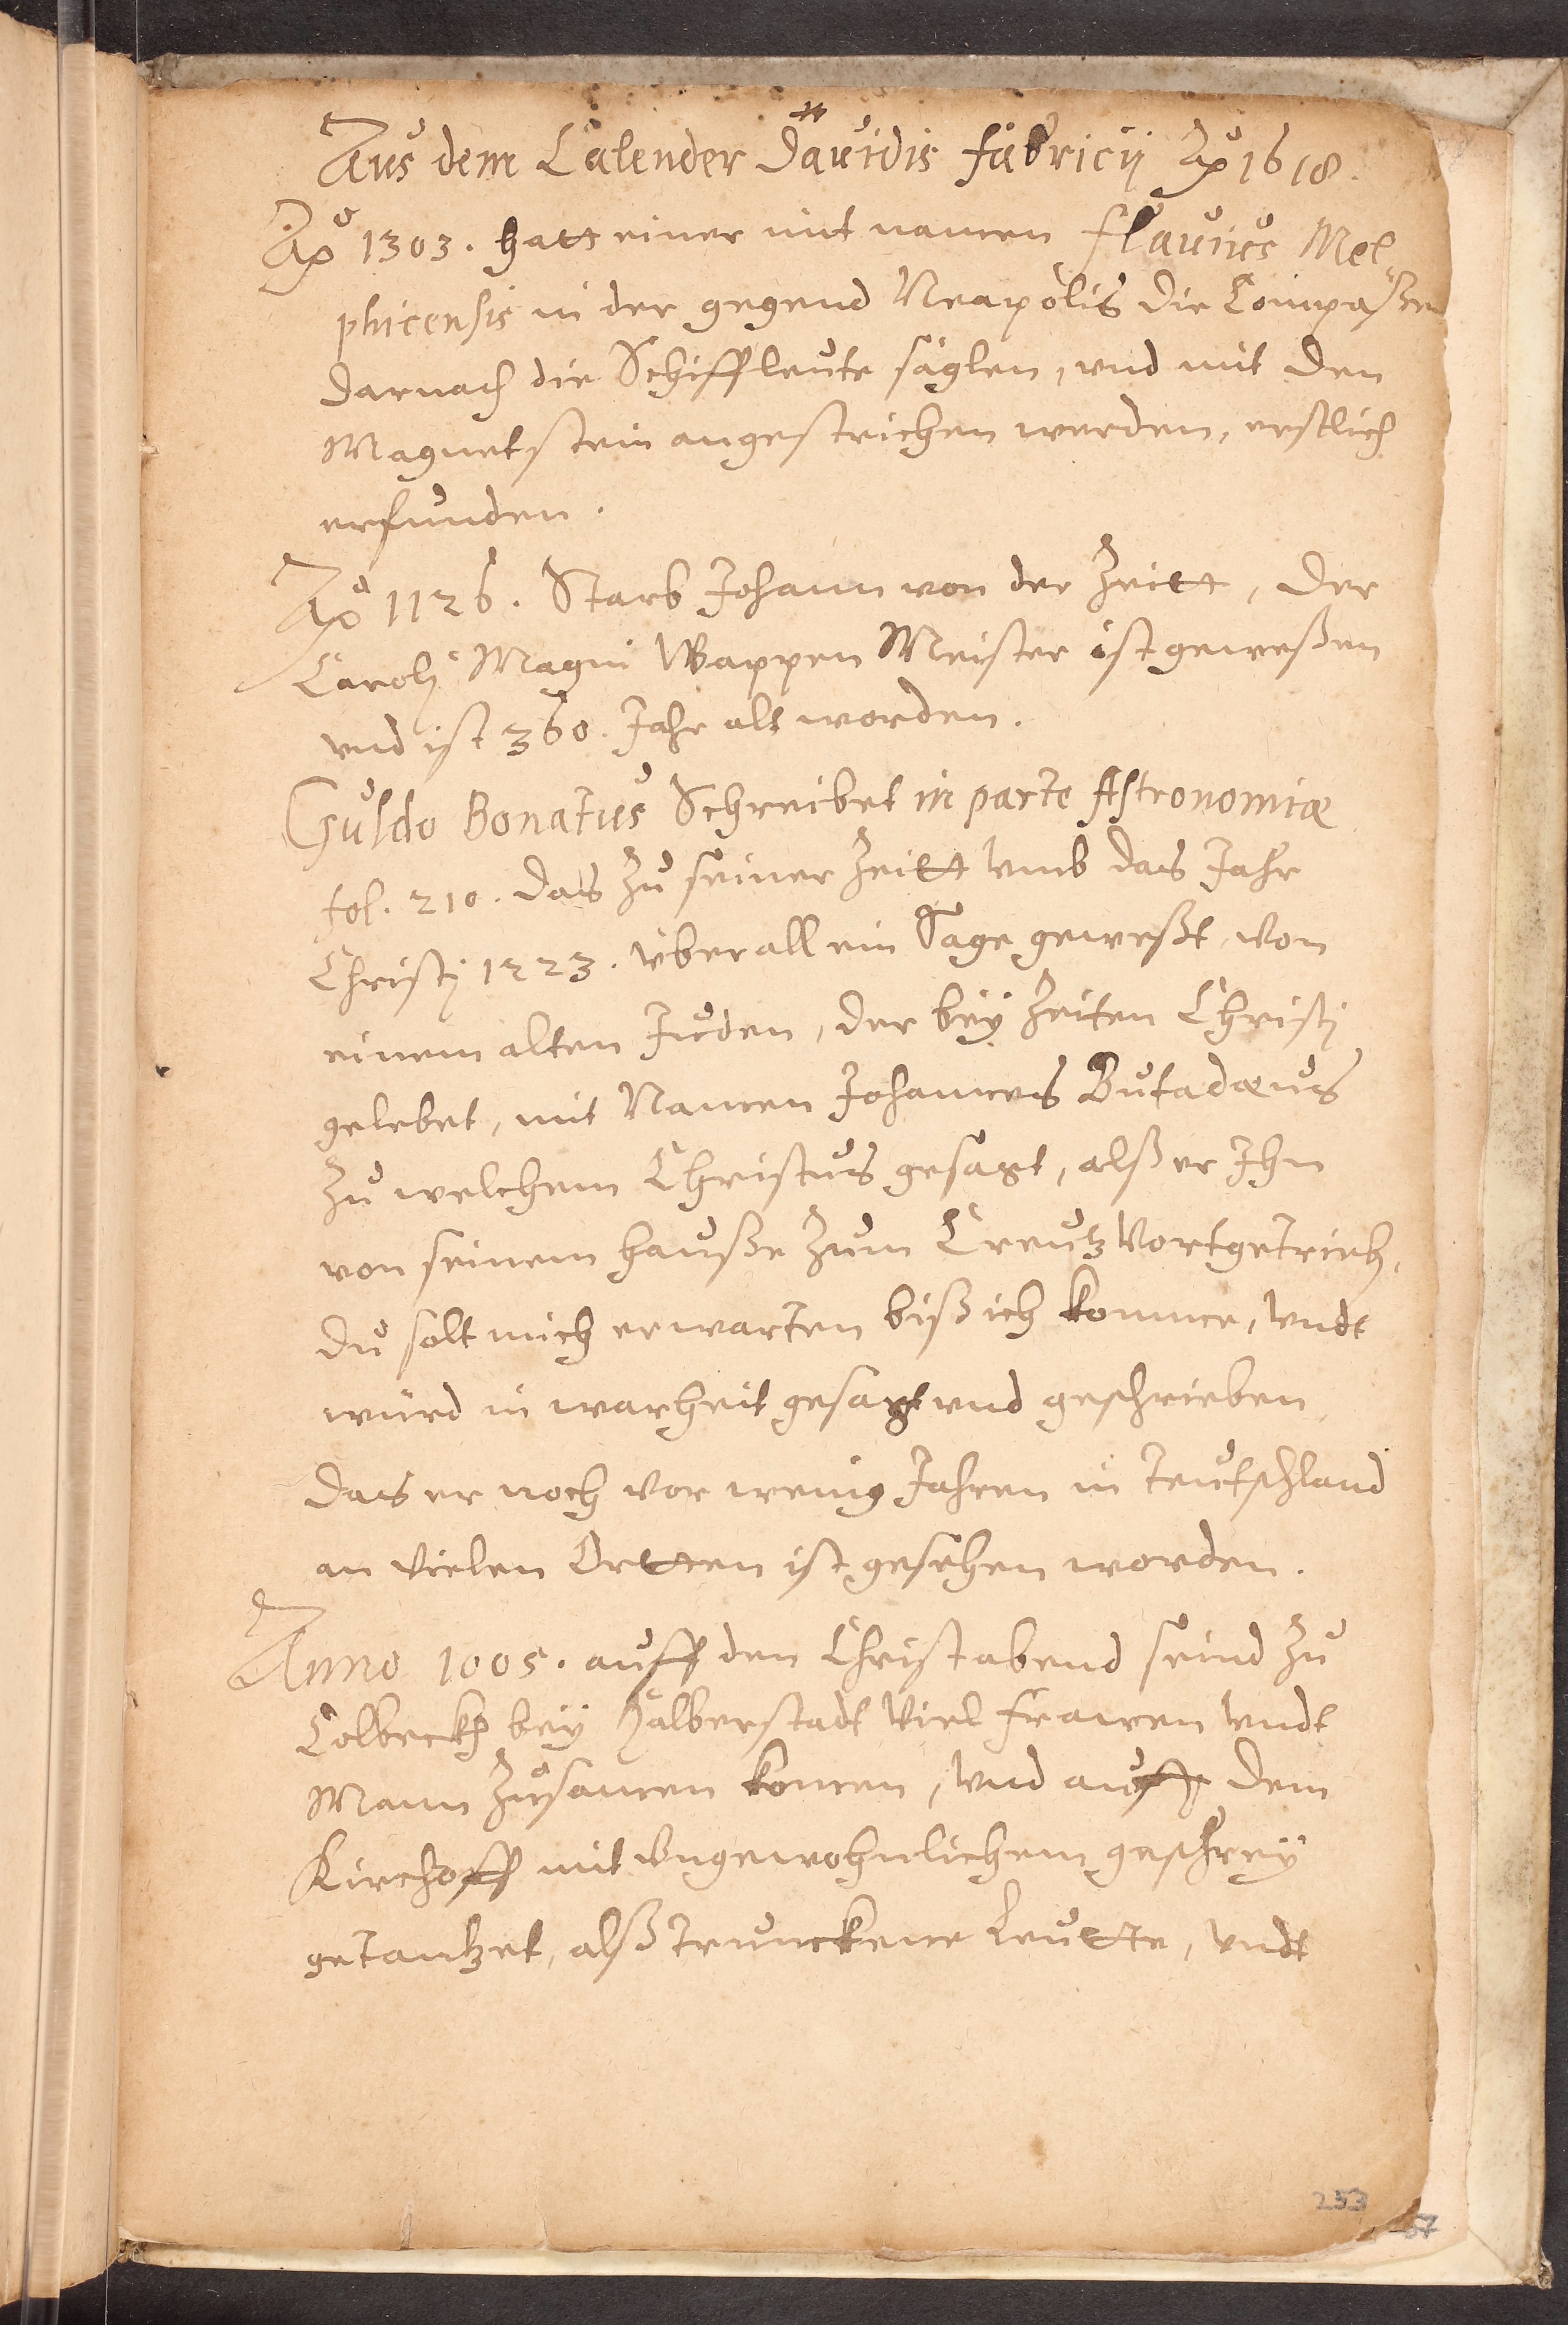 Aus dem Calender Davidis Fabricij Ao 1618.
Ao 1303. hatt einer mit namen Flavius Mel-
phicensis in der gegend Neapolis die Compaßen
darnach die Schiffleute säglen, vnd mit den
Magnetstein angestrichen werden, erstlich
erfunden.
Ao 1126. Starb Johann von der Zeitt, der
Caroli Magni Wappen Meister ist geweßen
vnd ist 360. Jahr alt worden.
Guldo Bonatus Schreibet in parte Astronomiæ
fol. 210. das zu seiner Zeitt vmb das Jahr
Christj 1223. vberall ein Sage geweßt, von
einem alten Juden, der beÿ Zeiten Christj
gelebet, mit Namen Johannes Butadæus
zu welchem Christus gesagt, alß er Ihn
von seinem hauße zum Creutz vortgetrieb,
du solt mich erwarten biß ich komme, vndt
würd in warheit gesagt vnd geschrieben
das er noch vor wenig Jahren in Teutschland
an vielen Ortten ist gesehen worden.
Anno 1005. auff den Christabend seind zu
Colbeckh beÿ Halberstadt viel frawen vndt
Mann zusamen komen, vnd auff dem
Kirchoff mit vngewohnlichem geschreÿ
getantzet, alß trunckene Leutte, vndt
253
57